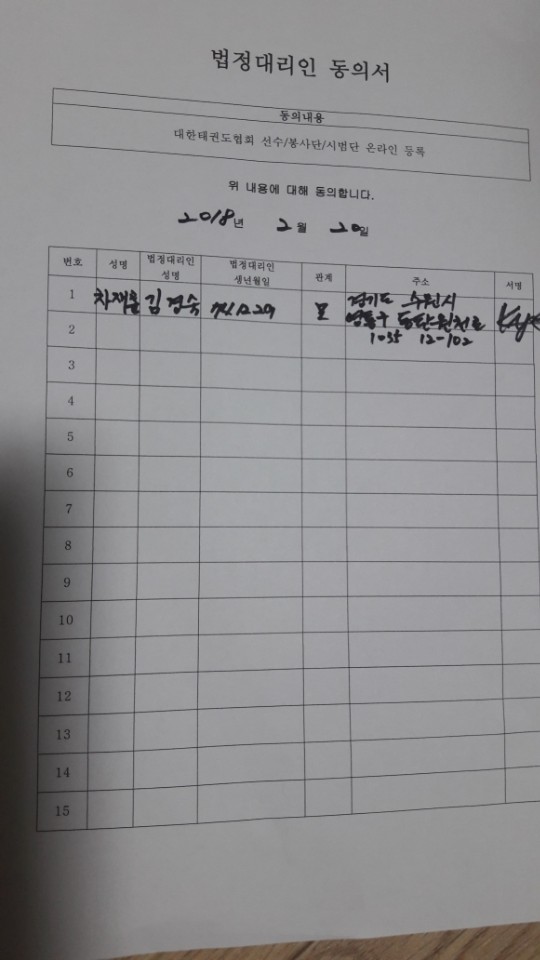 법정대리인 동의서
동의내용
대한태권도협회 선수/봉사단/시범단 온라인 등록
위 내용에 대해 동의합니다.
2018년 2월 20일
번호 성명 법정대리인 성명 법정대리인 생년월일 관계 주소 서명
1 김경숙 모 경기도 수원시
영통구 동탄원천로
1035 12-102
2
3
4
5
6
7
8
9
10
11
12
13
14
15